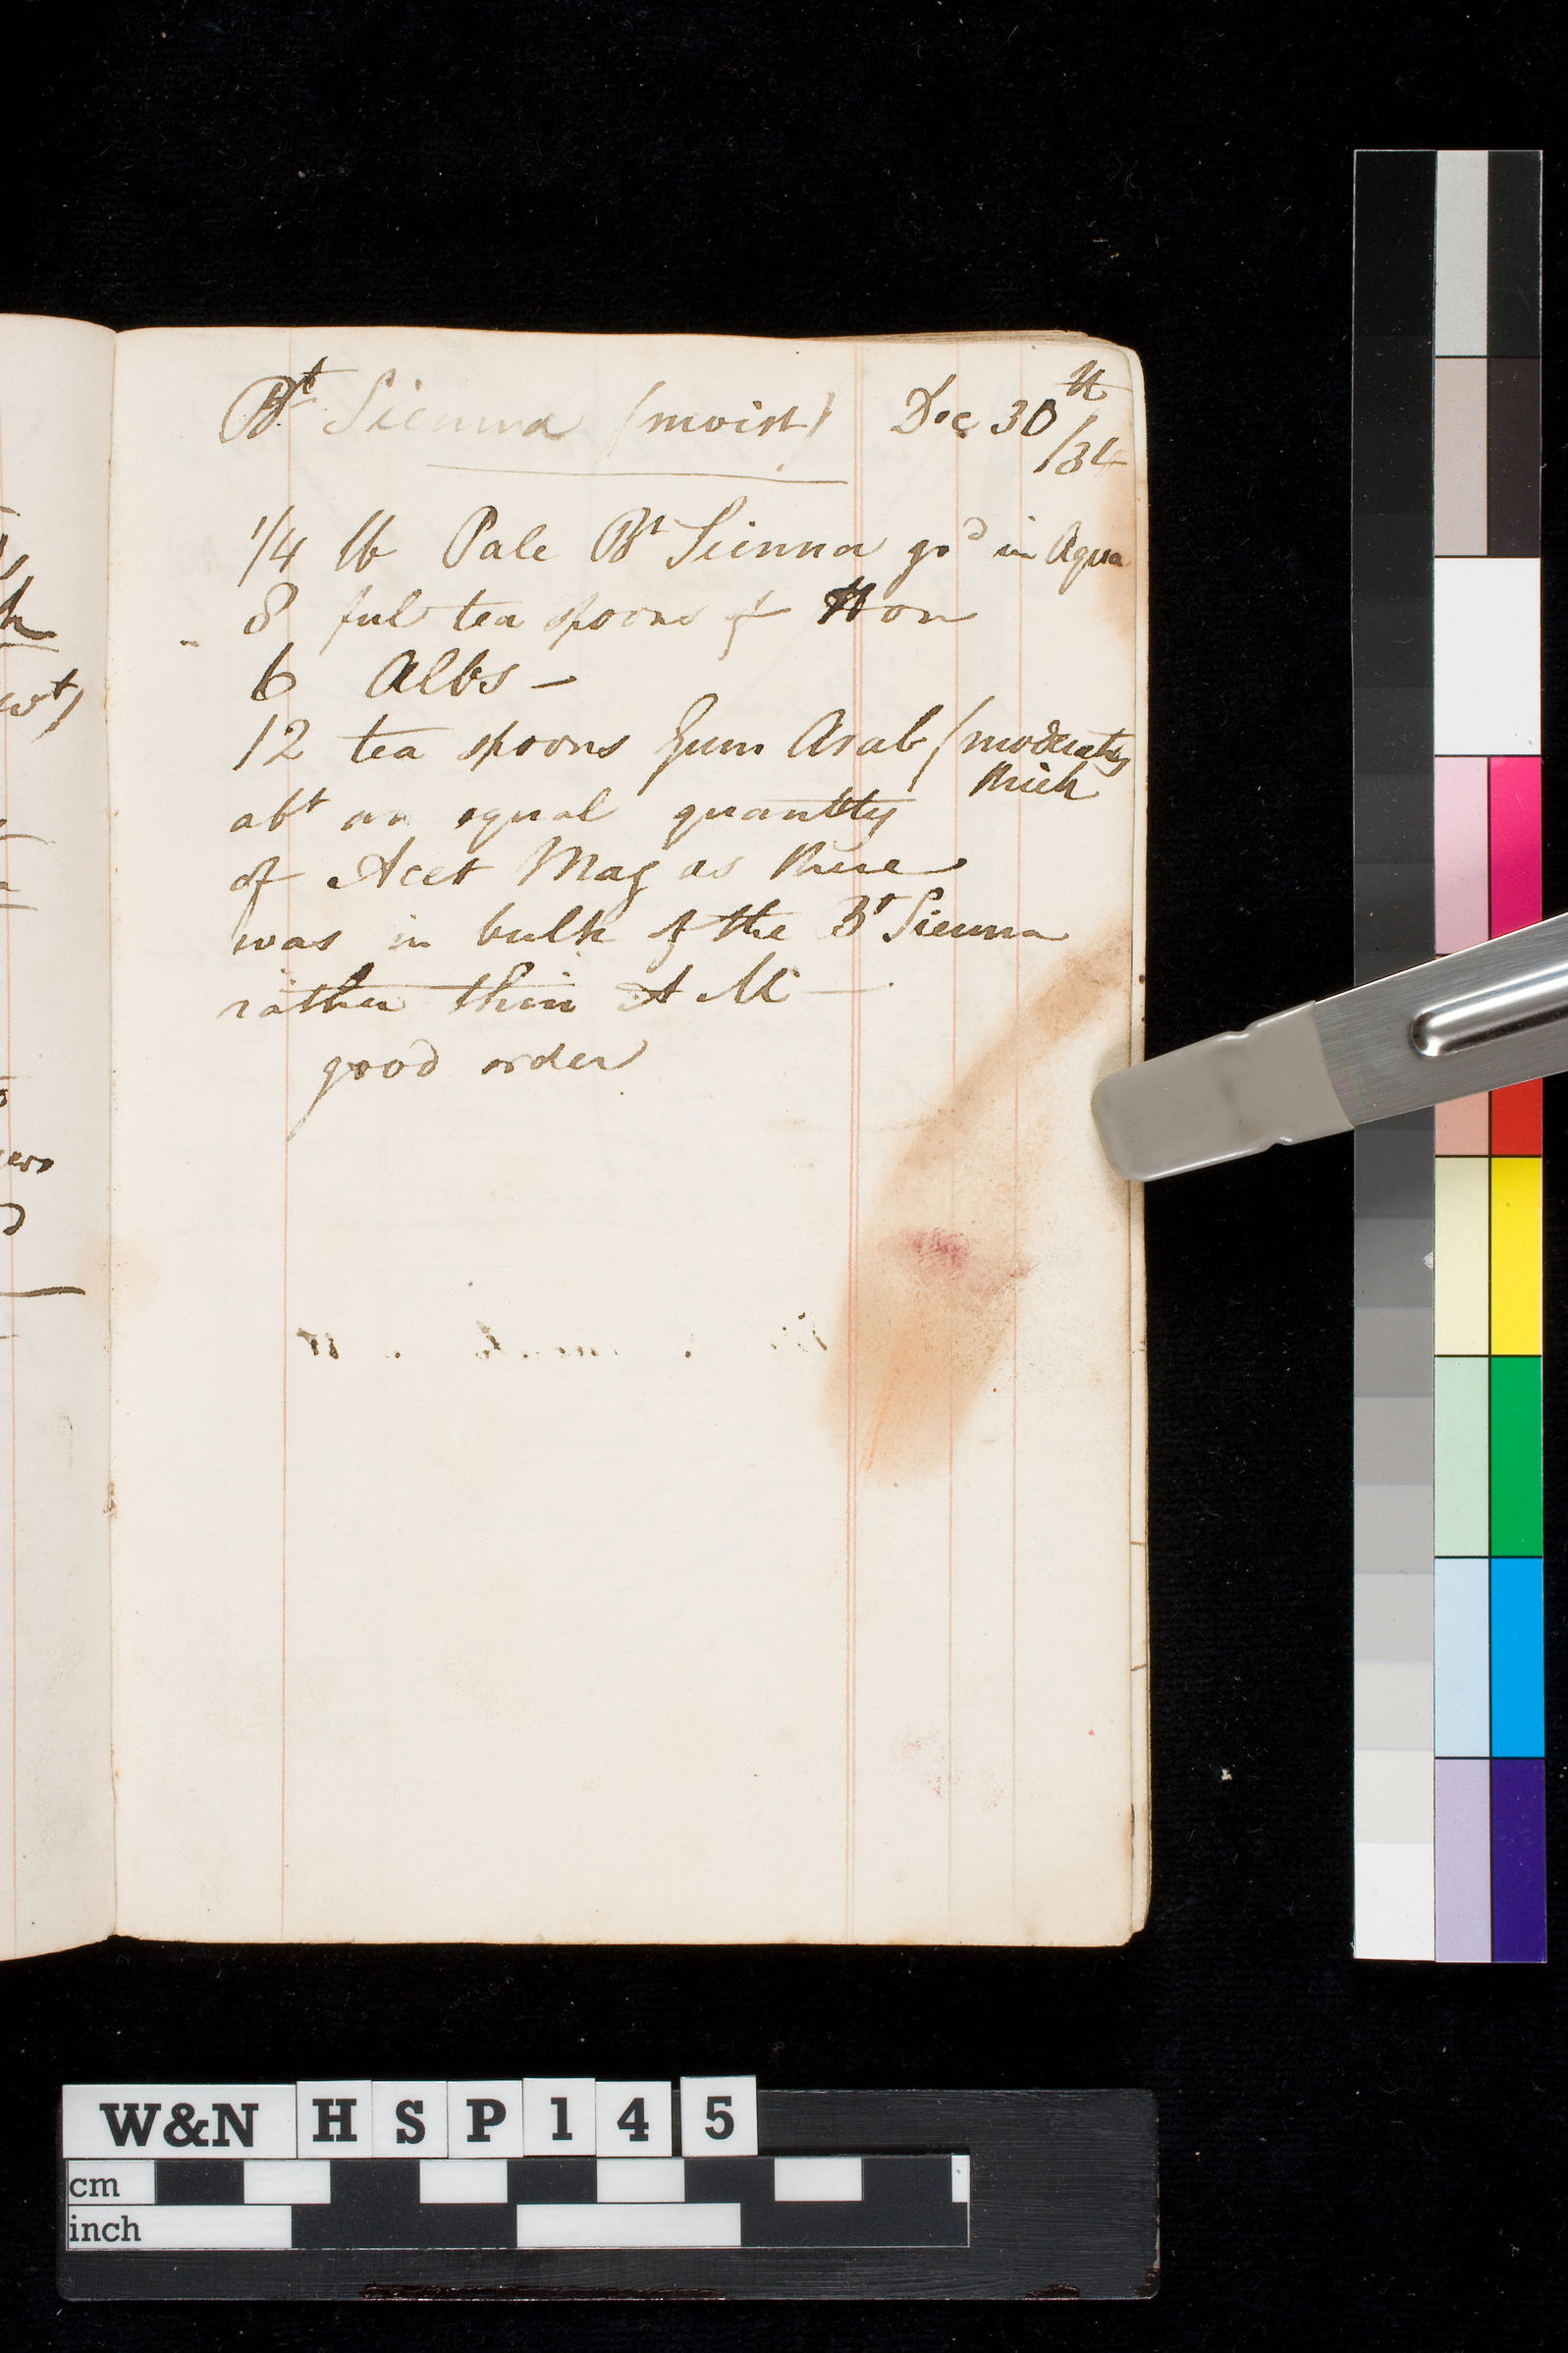 Bt Sienna (moist) Dec 30th
/34
1/4 lb Pale Bt Sienna grd in Aqua
8 full tea spoons of Hon
6 Albs —
12 tea spoons Gum Arab (moderately
thick
abt an equal quantity
of Acet Mag as there
was in bulk of the Bt Sienna
rather thin A M —
good order
W&N HSP145
cm
inch